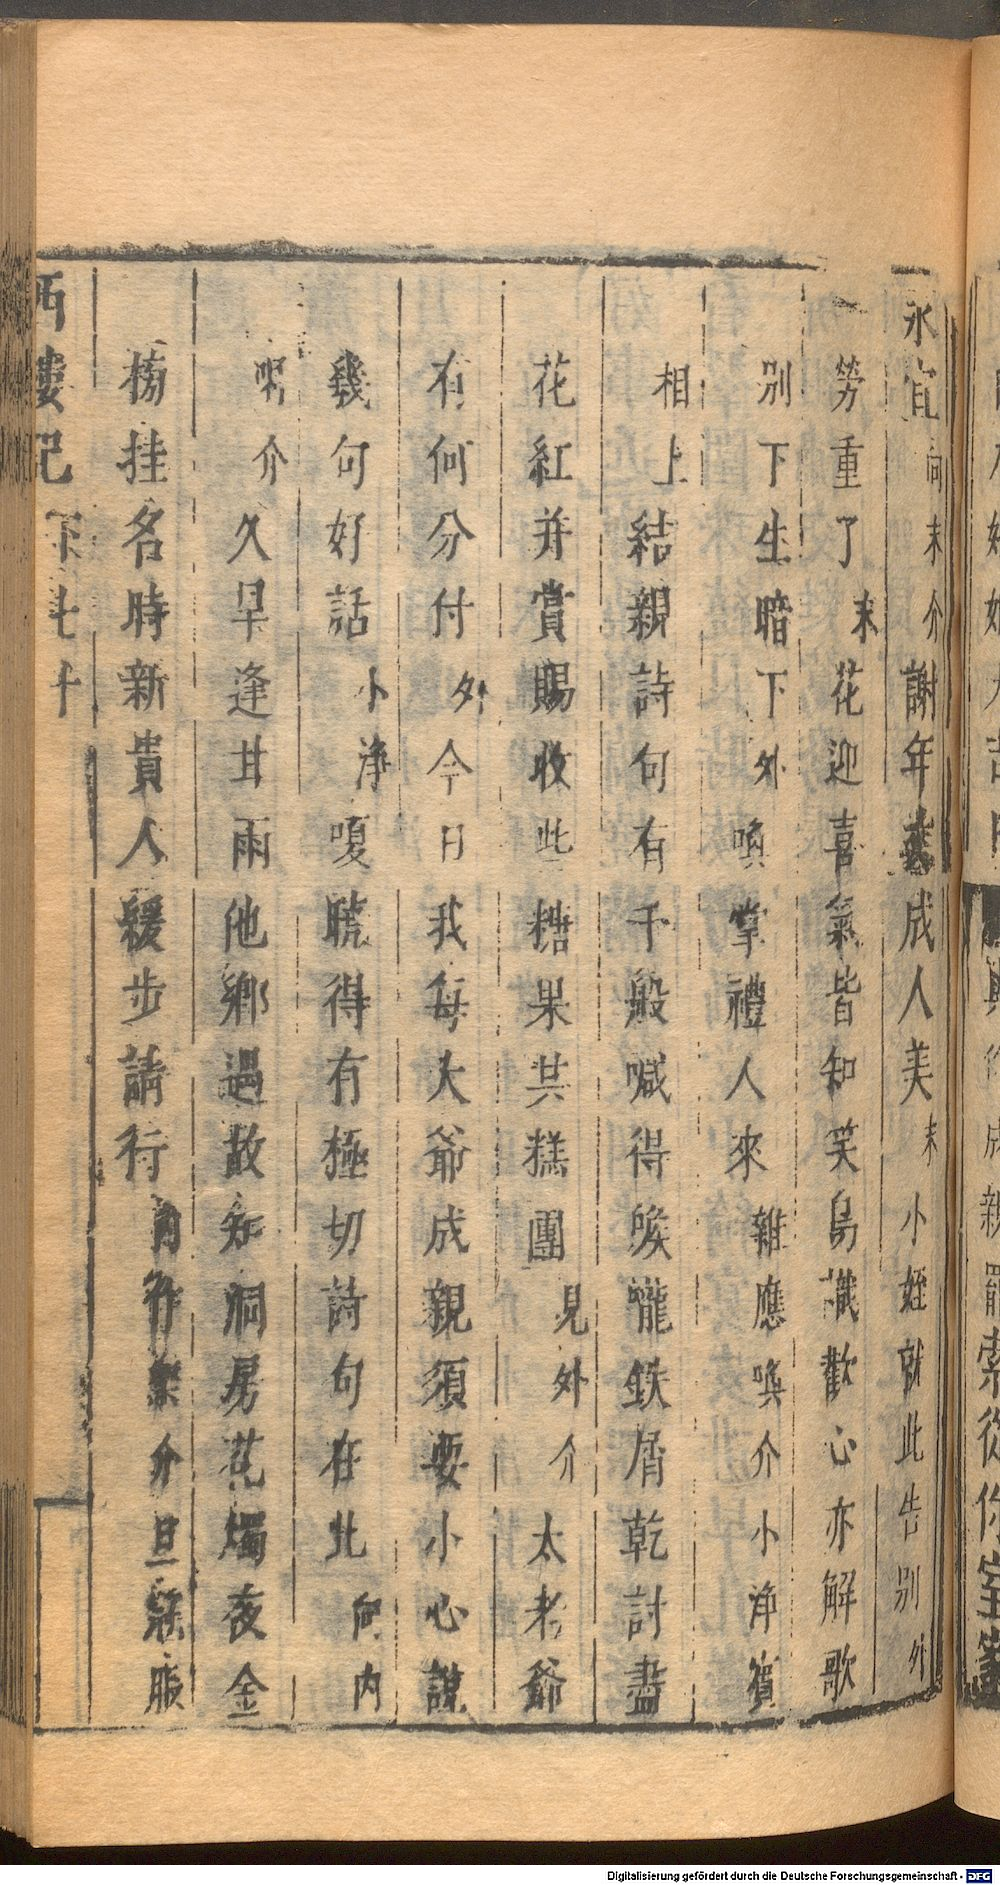 永宜向末介謝年成人美末小姪就此告別外
勞重了末花迎喜氣皆知笑鳥識歡心亦解歌
別下生暗下外喚掌禮人來雜應喚介小淨儐
相上結親詩句有千般喊得喉嚨鉄屑乾討盡
花紅并賞賜收些糖果共糕團見外介太老爺
有何分付外今日我每大爺成親須要小心說
幾句好話小淨嗄曉得有極切詩句在此向內
介久旱逢甘雨他鄉遇故知洞房花燭夜金
榜挂名時新貴人緩步請行內作樂介旦服
西樓記 下
Digitalisierung gefördert durch die Deutsche Forschungsgemeinschaft - DFG